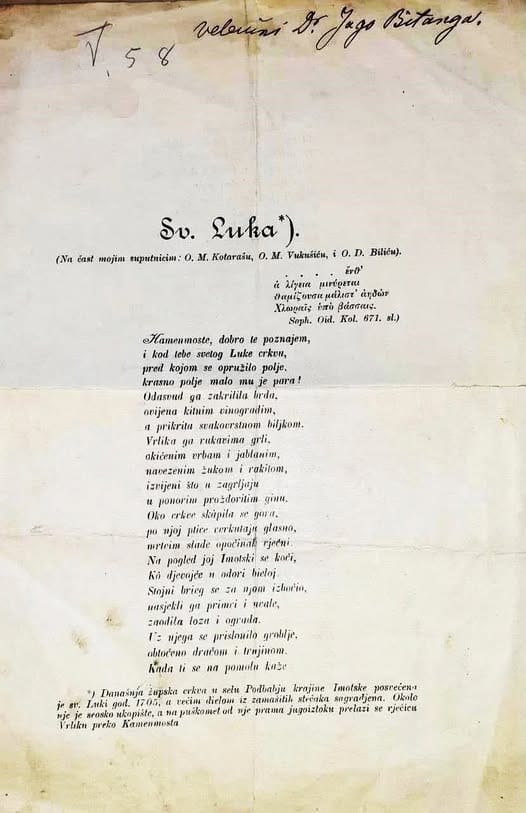 V, 58
veleučni Dr Jago Bitanga.
Sv. Luka*).
(Na čast mojim suputnicim: O. M. Kotarašu, O. M. Vukušiću, i O. D. Biliću).
. . . . ἔνθ'
ἁ λίγεια μινύρεται
θαμίζουσα μάλιστ' ἀηδὼν
Χλωραῖς ὑπὸ βάσσαις.
Soph. Oid. Kol. 671. sl.)
Kamenmoste, dobro te poznajem,
i kod tebe svetog Luke crkvu,
pred kojom se opružilo polje,
krasno polje malo mu je para!
Odasvud ga zakrilila brda,
ovijena kitnim vinogradim,
a prikrita svakovrstnom biljkom.
Vrlika ga rukavima grli,
okićenim vrbam i jablanim,
navezenim žukom i rakitom,
izvijeni što u zagrljaju
u ponorim proždoritim ginu.
Oko crkve skúpila se gora,
po njoj ptice cvrkutaju glasno,
mrtvim slade opočinak vječni.
Na pogled joj Imotski se koči,
Kô djevojče u odori bieloj
Stojni brieg se za njom izbočio,
nasjekli ga primci i uvale,
zaodila loza i ograda.
Uz njega se prislonilo groblje,
obtočeno dračom i trnjinom.
Kada ti se na pomolu kaže
*) Današnja župska crkva u selu Podbablju krajine Imotske posvećena
je sv. Luki god. 1705, a većim dielom iz zamašitih stećaka sagradjena. Okolo
nje je seosko ukopište, a na puškomet od nje prama jugoiztoku prelazi se rječicu
Vrliku preko Kamenmosta